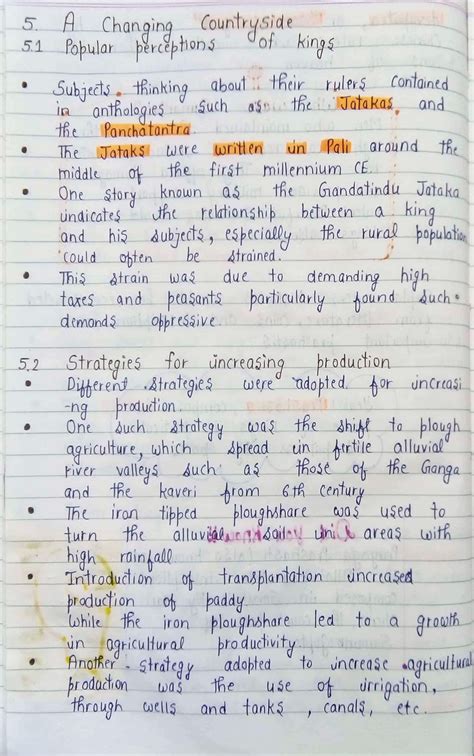 5. A Changing Countryside
5.1 Popular perceptions of kings
• Subjects thinking about their rulers contained
in anthologies such as the Jatakas and
the Panchatantra.
• The Jataks were written in Pali around the
middle of the first millennium CE.
• One story known as the Gandatindu Jataka
indicates the relationship between a king
and his subjects, especially the rural population
could often be strained.
• This strain was due to demanding high
taxes and peasants particularly found such
demands oppressive
5.2 Strategies for increasing production
• Different strategies were adopted for increasi
-ng production.
• One such strategy was the shift to plough
agriculture, which spread in fertile alluvial
river valleys such as those of the Ganga
and the Kaveri from 6th century
• The iron tipped ploughshare was used to
turn the alluvial soil in areas with
high rainfall
• Introduction of transplantation increased
production of paddy
While the iron ploughshare led to a growth
in agricultural productivity
• Another strategy adopted to increase agricultural
production was the use of irrigation,
through wells and tanks, canals, etc.